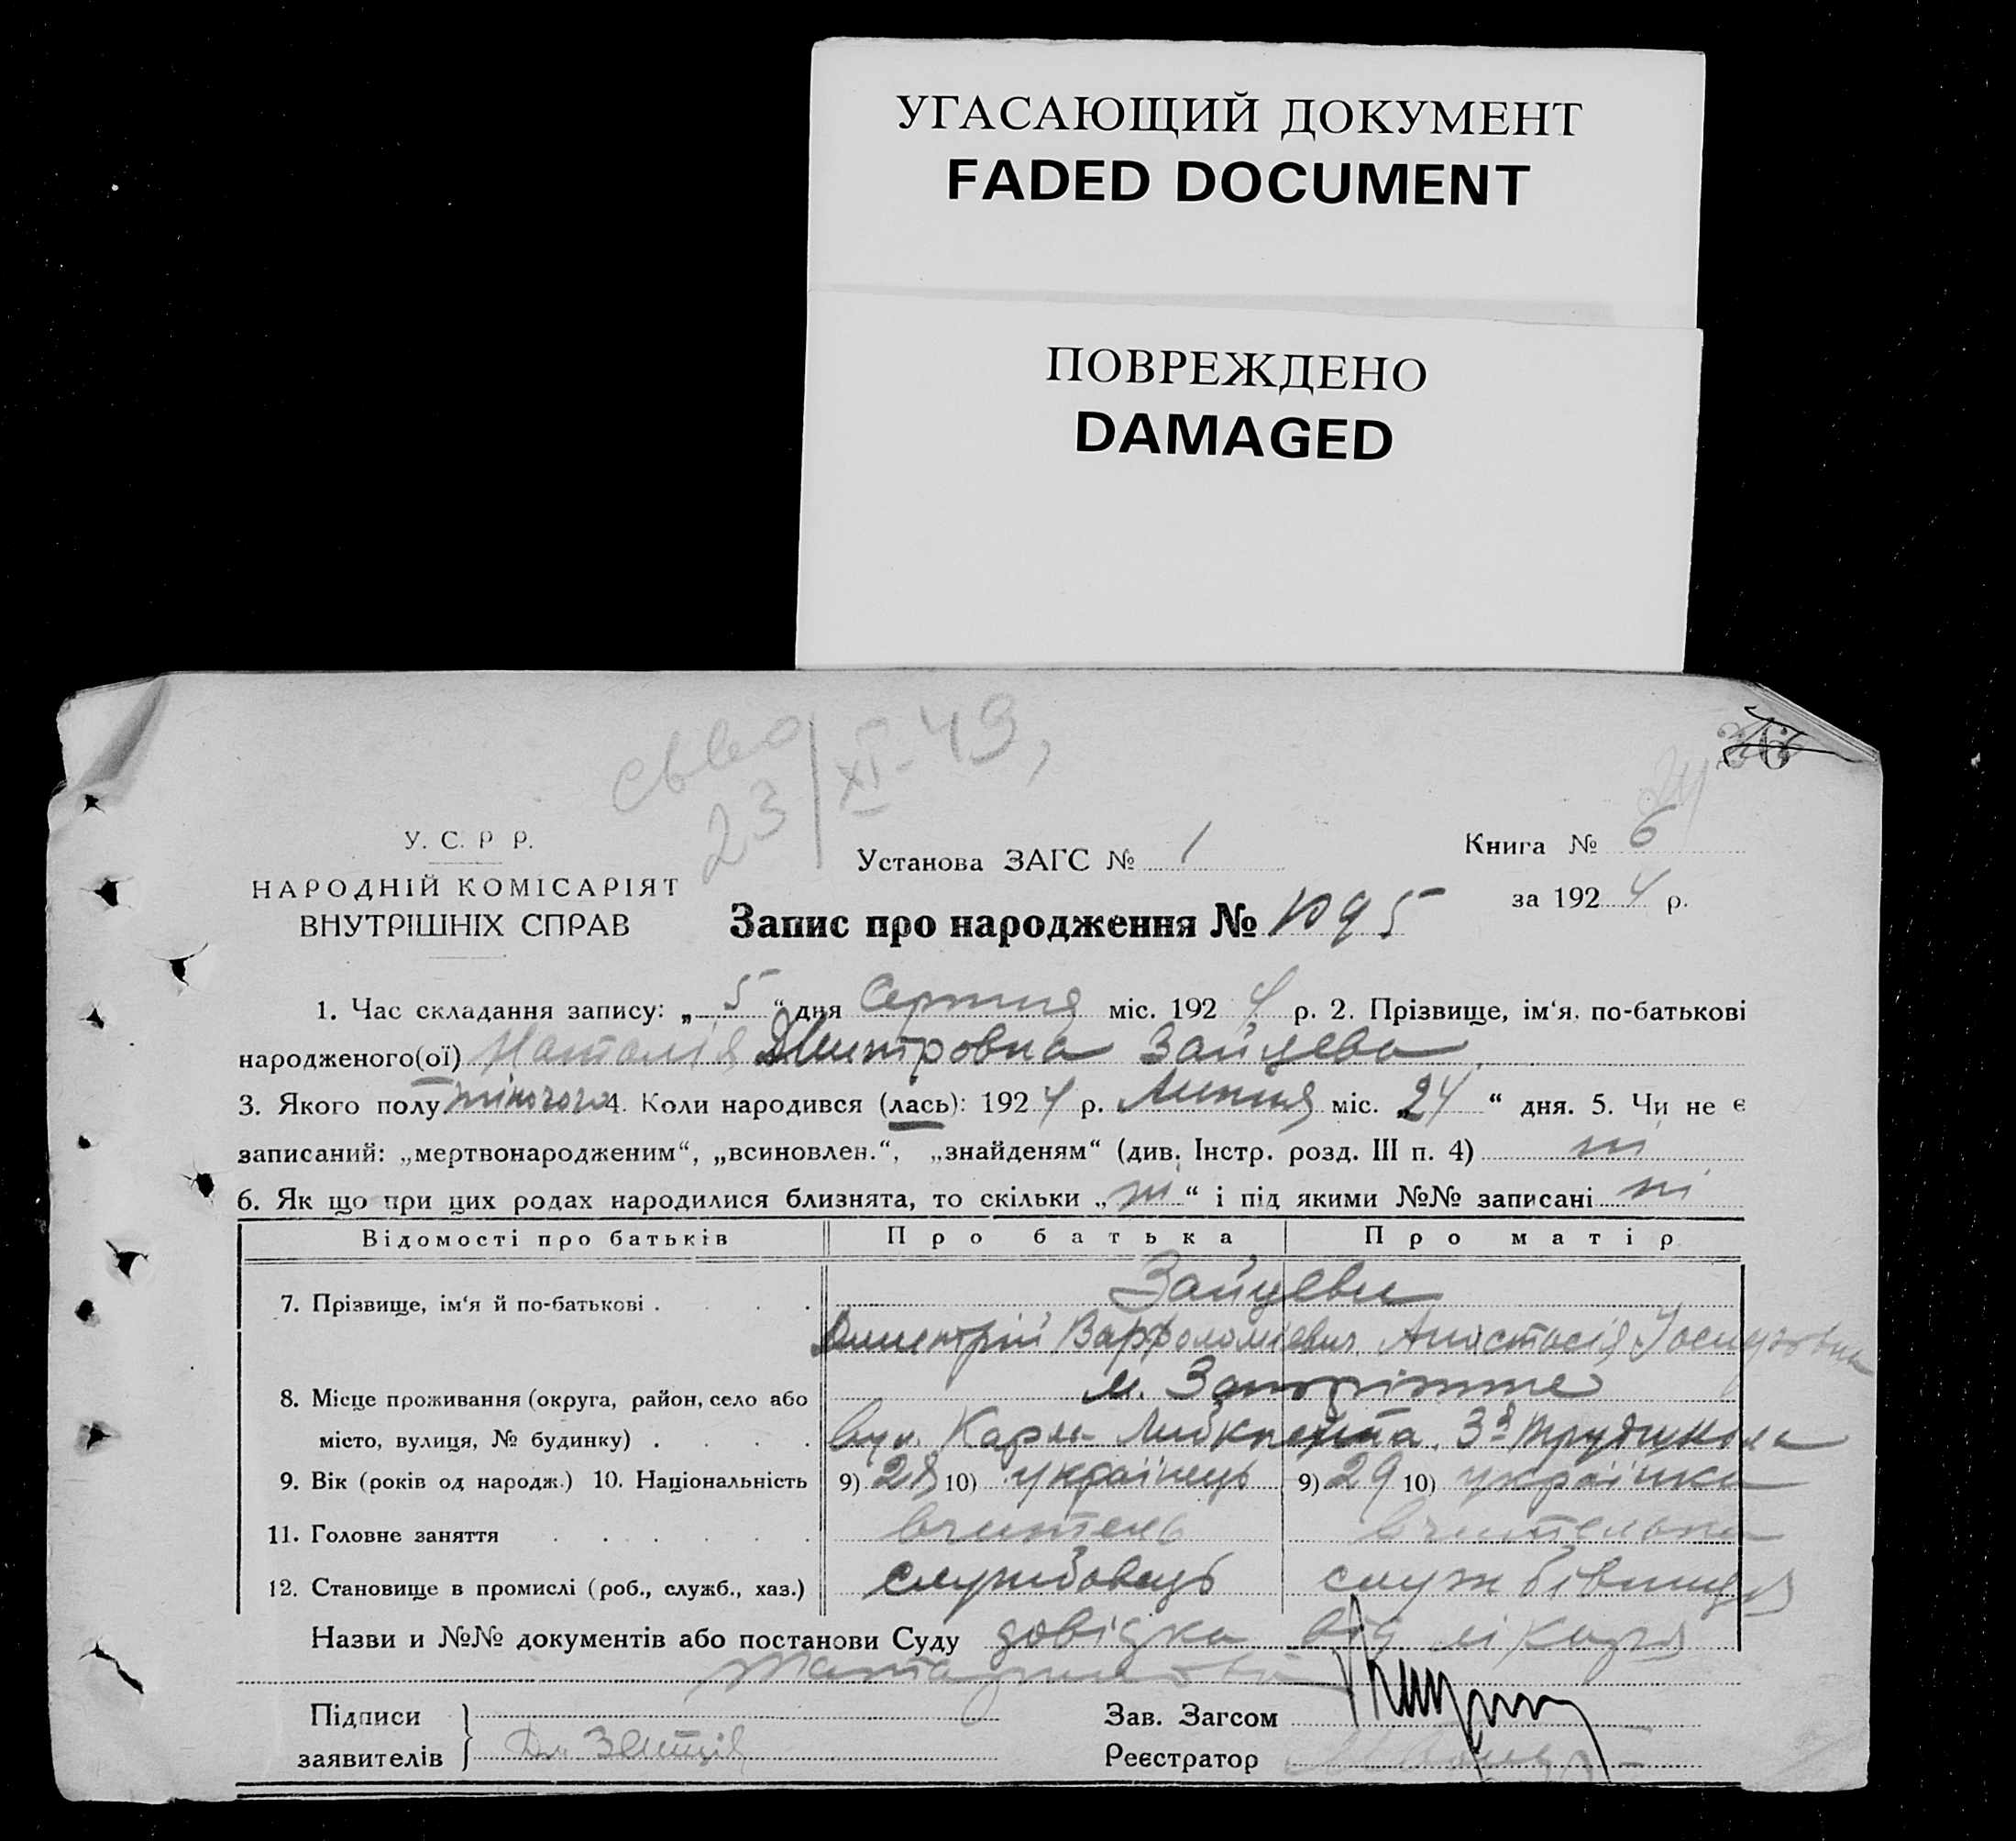 УГАСАЮЩИЙ ДОКУМЕНТ
FADED DOCUMENT
ПОВРЕЖДЕНО
DAMAGED
23/XI-49,
У. С. Р Р.
НАРОДНІЙ КОМІСАРІЯТ
ВНУТРІШНІХ СПРАВ
Установа ЗАГС № 1
Книга № 6
за 1924 р.
Запис про народження № 1095
1. Час складання запису: „ 5 “ дня Серпня міс. 1924 р. 2. Прізвище, ім‘я. по-батькові
народженого(ої) Наталія Дмитровна Зайцева
3. Якого полу жіночого 4. Коли народився (лась): 1924 р. Липня міс. „24“ дня. 5. Чи не є
записаний: „мертвонародженим“, „всиновлен.“, „знайденям“ (див. Інстр. розд. III п. 4) ні
6. Як що при цих родах народилися близнята, то скільки „ні“ і під якими №№ записані ні
Відомості про батьків Про батька Про матір
7. Прізвище, ім‘я й по-батькові . . . . Зайцеви
Дмитрій Варфоломієвич Анастасія Йосиповна
м. Запоріжжє
8. Місце проживання (округа, район, село або
місто, вулиця, № будинку) . . . . вул. Карла Лібкнехта. 3я Трудшкола
9. Вік (років од народж.) 10. Національність 9) 28 10) українець 9) 29 10) українка
11. Головне заняття . . . . . . вчитель вчителька
12. Становище в промислі (роб., служб., хаз.) службовець службівниця
Назви и №№ документів або постанови Суду довідка від лікаря
Підписи
заявителів
Зав. Загсом
Реєстратор